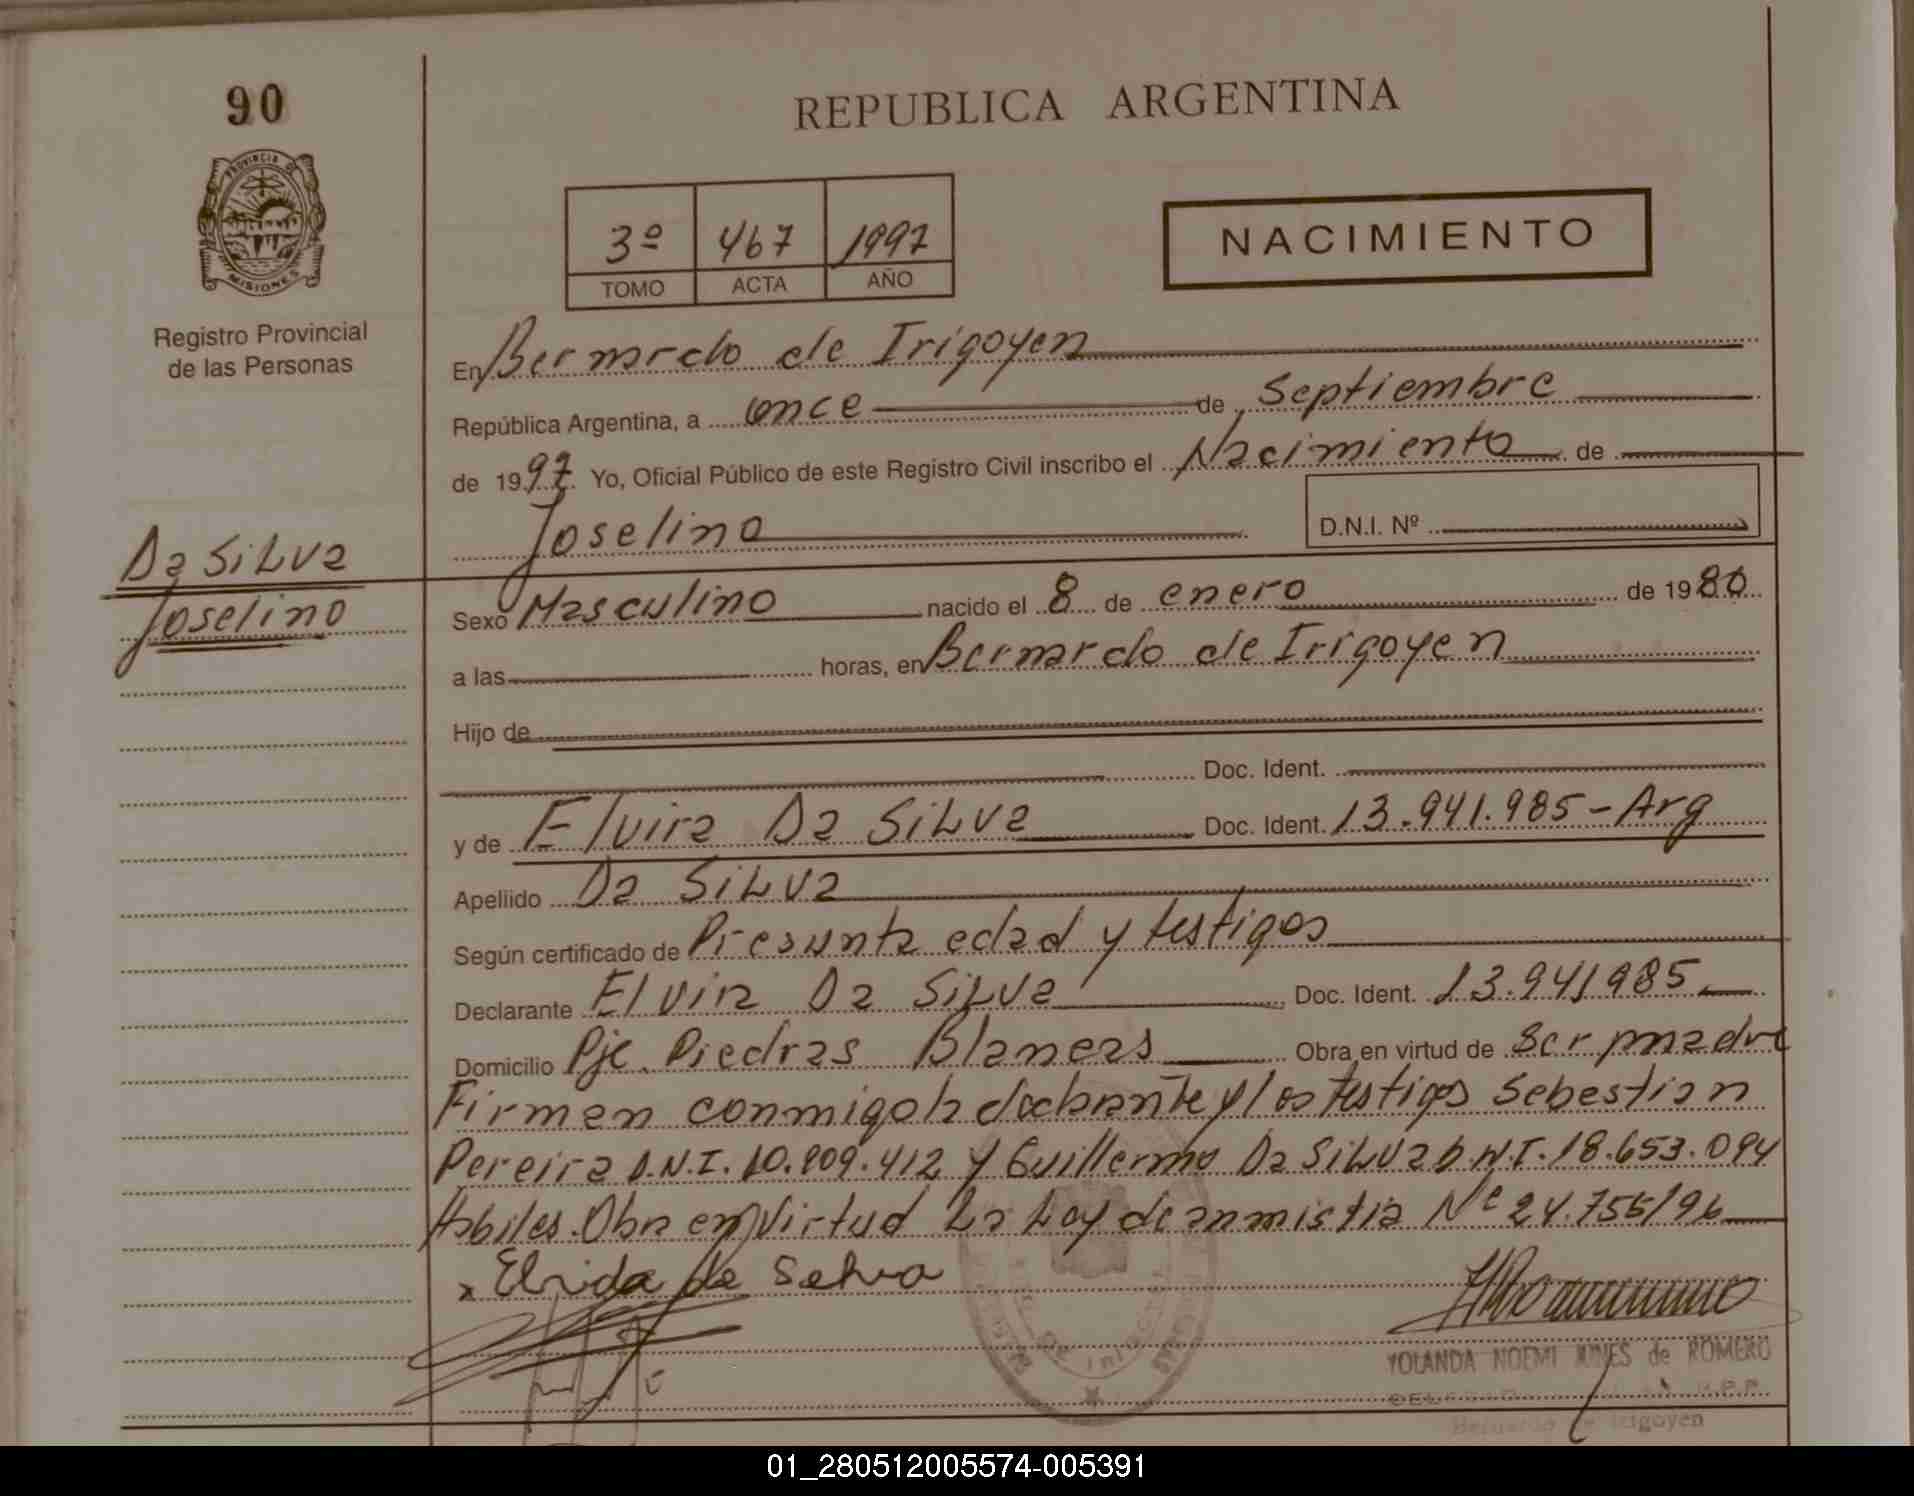 90
REPUBLICA ARGENTINA
PROVINCIA DE
MISIONES
3º 467 1997
TOMO ACTA AÑO
NACIMIENTO
Registro Provincial
de las Personas
En Bernardo de Irigoyen
República Argentina, a once de Septiembre
de 1997 Yo, Oficial Público de este Registro Civil inscribo el Nacimiento de
Joselino D.N.I. Nº
Da SiLva
Joselino
Sexo Masculino nacido el 8 de enero de 1980
a las horas, en Bernardo de Irigoyen
Hijo de
Doc. Ident.
y de Elvira Da SiLva Doc. Ident. 13.941.985-Arg
Apellido Da SiLva
Según certificado de Presunta edad y testigos
Declarante Elvira Da SiLva Doc. Ident. 13.941985
Domicilio Pje. Piedras Blancas Obra en virtud de Ser madre
Firman conmigo la declarante y los testigos Sebastian
Pereira D.N.I. 10.909.412 y Guillermo Da SiLva D.N.I. 18.653.094
Habiles. Obra en Virtud La Ley de anmistia Nº 24.755/96
x Elvida de Selva
YOLANDA NOEMI JUNES de ROMERO
R.P.P.
Bernardo de Irigoyen
01_280512005574-005391